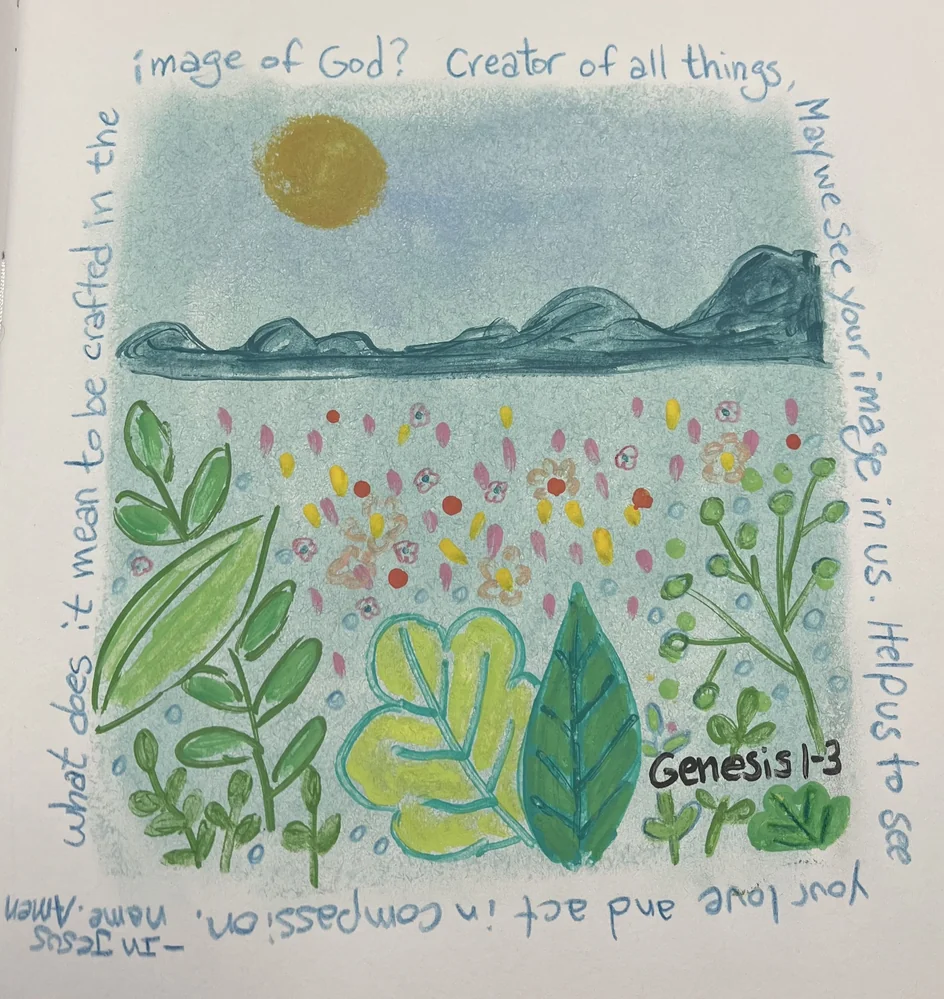 what does it mean to be crafted in the
image of God? Creator of all things,
May we see your image in us. Help us to see
your love and act in compassion.
-In Jesus
name. Amen
Genesis 1-3